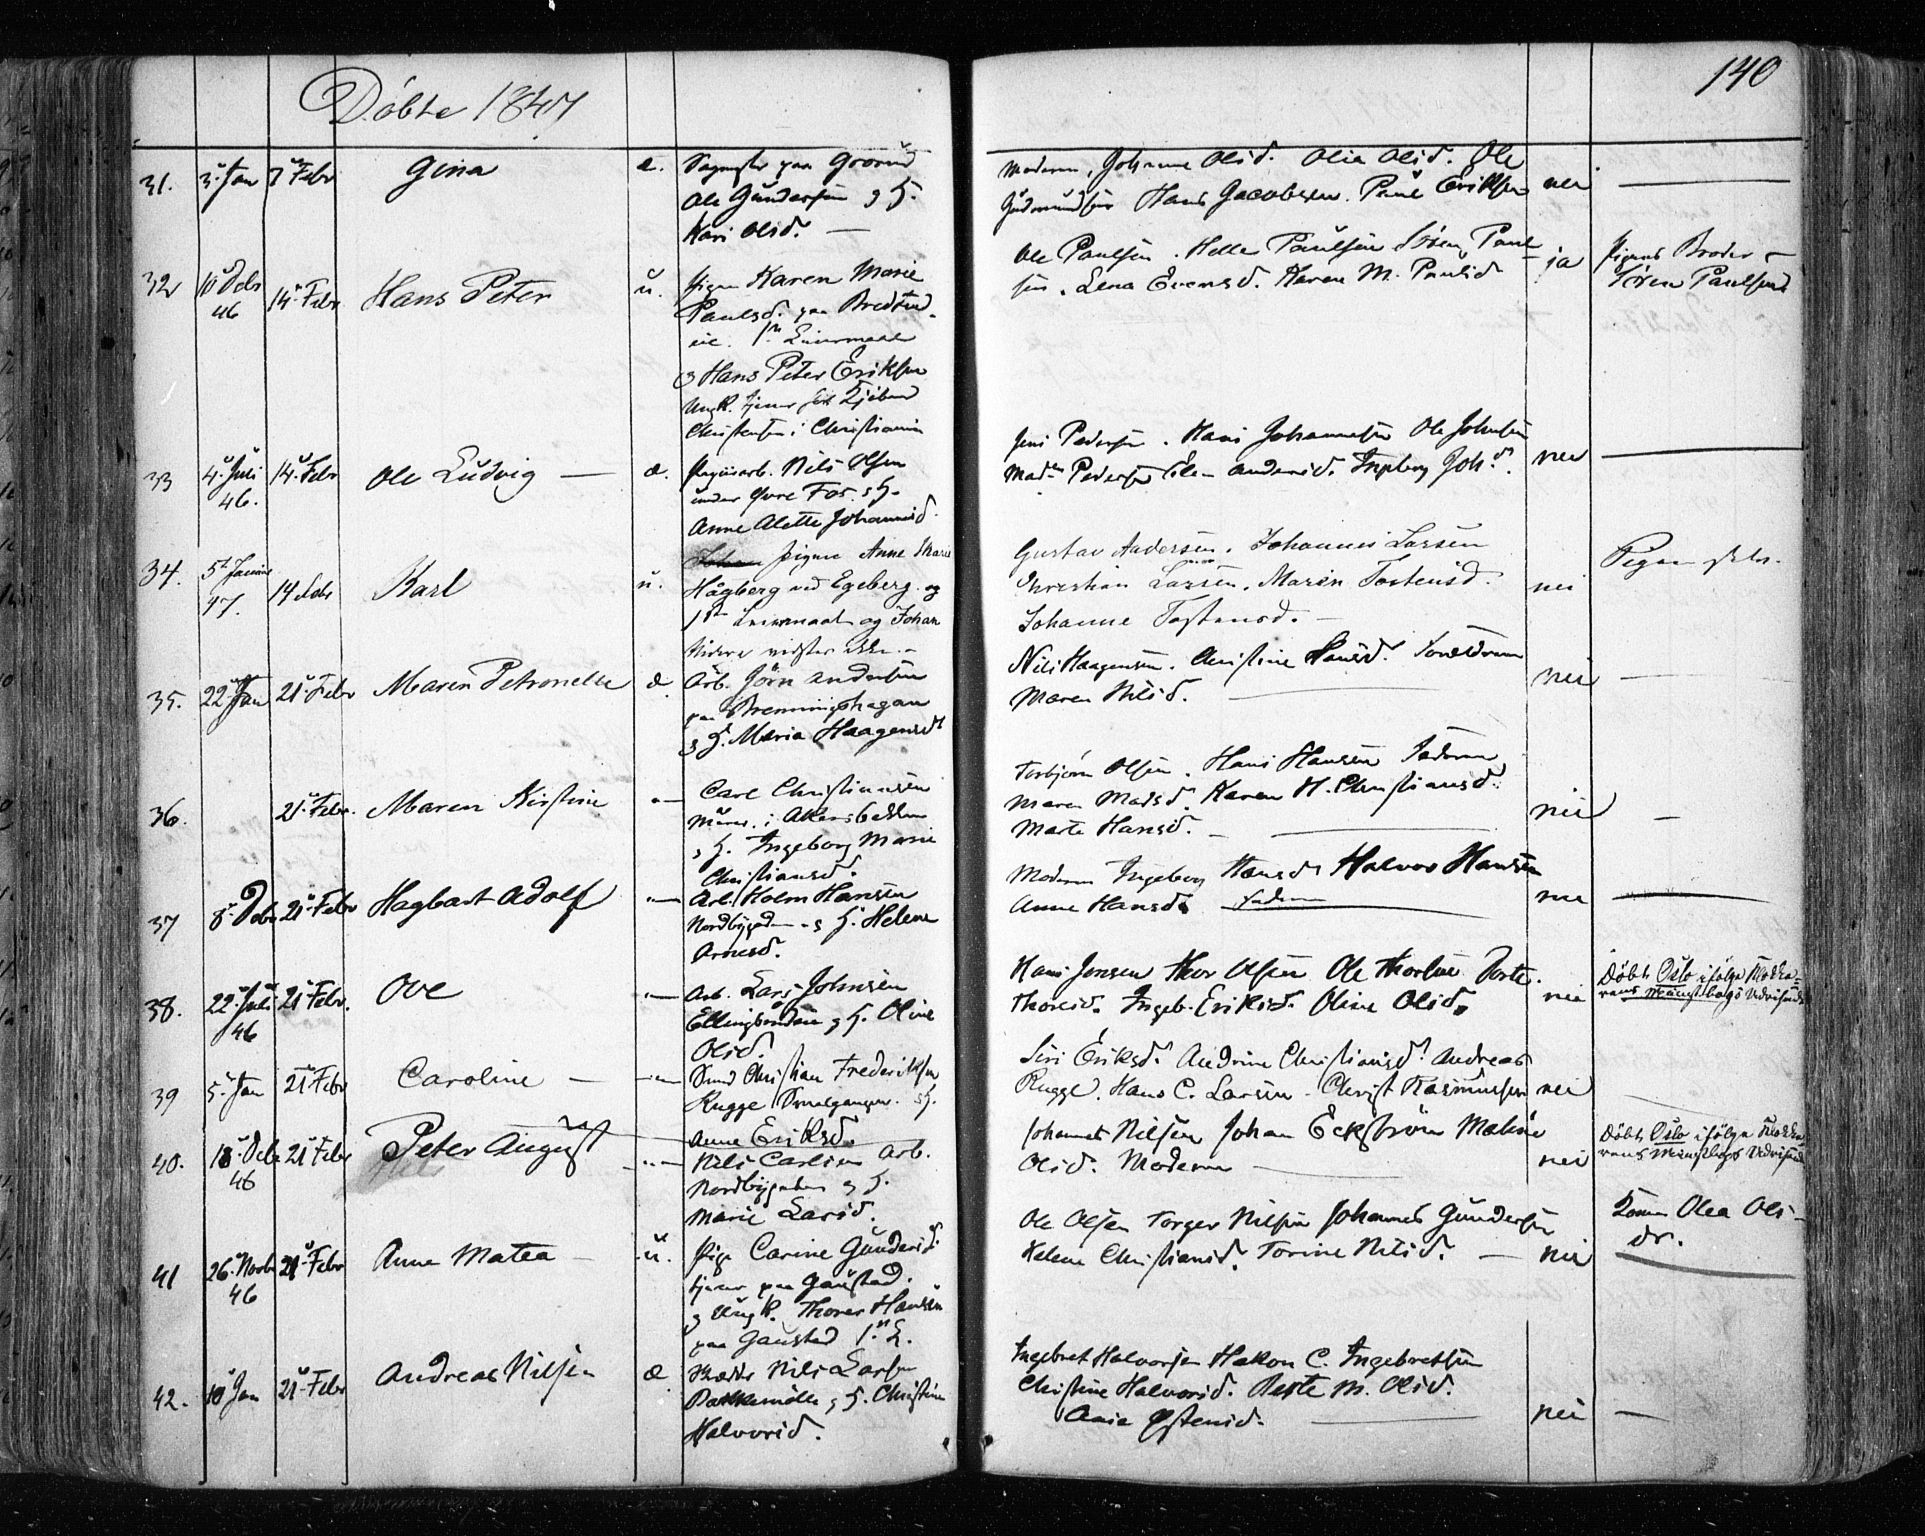 Döbte 1847
140
31. 3. Jan 7 Febr Gina æ. paa Grorud
Ole Gundersen & H.
Kari Olsd. —
Moderen, Johanne Olsd. Olia Olsd. Ole
Gudmundsen Hans Jacobsen. Paul Eriksen nei —
32 10 Debr 46 14. Febr Hans Peter u. Pigen Karen Marie
Paulsd. paa Bredtved
1ste Leiermaal
& Hans Peter Eriksen
Ungk. tjener
Christensen i Christiania
Ole Paulsen. Helle Paulsen Sören Paul-
sen. Lena Evensd. Karen M. Paulsd ja Pigens Broder
Sören Paulsen
33 4. Juli 46. 14. Febr Ole Ludvig — æ. Nils Olsen
under Øvre Fos. & H.
Anne Alette Johannesd.
Jens Pedersen. Hans Johannesen Ole Johnsen
Pedersen Andersd. Ingeborg Joh.d. nei —
34. 5te Januar 47. 14 Febr Karl u. Johan Pigen Anne Marie
Hågberg ved Egeberg og
1ste Leiermaal og Johan
videre vidstes ikke. —
Gustav Andersen. Johannes Larsen
Christian Larsen. Maren Tostensd.
Johanne Tostensd. — nei Pigen selv.
35. 22 Jan 21. Febr Maren Petronelle æ Arb. Jörn Andersen
paa Bremmingshagan
& H. Maria Haagensdt
Nils Haagensen. Christine Hansd.
Maren Nilsd. — nei —
36. 21. Febr. Maren Kirstine Carl Christiansen
Murer. i Akersbakken
& H. Ingeborg Marie
Christiansd.
Torbjörn Olsen. Hans Hansen Faderen
Maren Madsd. Karen H. Christiansd.
Marte Hansd. — nei —
37 8. Debr 21. Febr Hagbart Adolf Arb. Holm Hansen
Nordbygaden & H. Helene
Arnesd.
Moderen Ingeborg Hansd Halvor Hansen
Anne Hansd. Faderen nei —
38. 22. Juli 46 21 Febr. Ove Arb. Lars Johnsen
& H. Oline
Olsd.
Hans Jensen Thor Olsen Ole Thorsen Dorte
Thorsd. Ingeb. Eriksd. Oline Olsd. nei Döbt i Oslo ifölge Klokke-
rens
39 5. Jan 21 Febr Caroline — Christian Frederiksen
Rugge Smalgangen. & H.
Anne Eriksd.
Siri Eriksd. Andrine Christiansd. Andreas
Rugge. Hans C. Larsen. Christ Rasmussen nei
40. 18. Debr 46 21 Febr Peter August Nils Carlsen Arb.
Nordbygaden & H.
Marie Larsd.
Johannes Nilsen Johan Eckström Maline
Olsd. Moderen — nei Döbt i Oslo ifölge Klokke-
rens
41 26. Novbr 46 21. Febr Anne Matea — u. Pige Carine Gundersd.
tjener paa Gaustad.
& Ungk. Thorer Hansen
paa Gaustad 1. L.
Ole Olsen Torger Nilsen Johannes Gundersen
Helene Christiansd. Torine Nilsd. — nei Konen Olea Ols-
dr.
42. 10 Jan 21. Febr Andreas Nilsen æ Nils Larsen
Bakkemölle & H. Christine
Halvorsd.
Ingebret Halvorsen Hakon C. Ingebretsen
Christine Halvorsd. Berte M. Olsd.
Østensd. — nei —